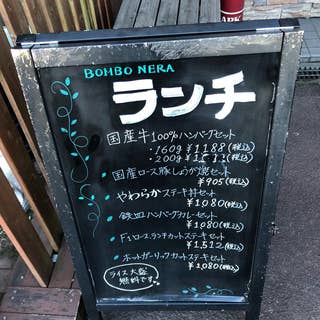 BOMBO NERA
ランチ
国産牛100%ハンバーグセット
・160g ¥1188(税込)
・200g ¥1512(税込)
国産ロース豚しょうが焼セット
¥905(税込)
やわらかステーキ丼セット
¥1,080(税込)
鉄皿ハンバーグカレーセット
¥1,080(税込)
ロース.ランチカットステーキセット
¥1,512(税込)
ホットガーリックカットステーキセット
¥1,080(税込)
ライス大盛
無料です。